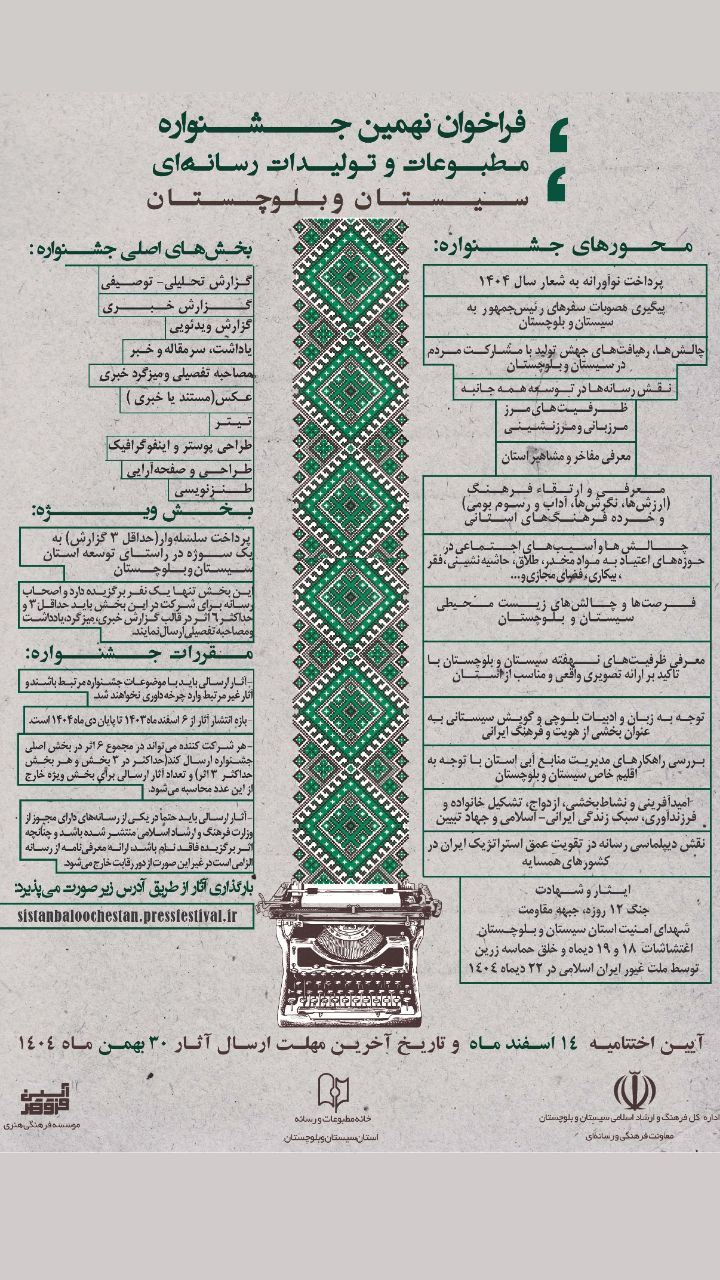 فراخوان نهمین جشنواره
مطبوعات و تولیدات رسانه‌ای
سیستان و بلوچستان
محورهای جشنواره:
پرداخت نوآورانه به شعار سال ۱۴۰۴
پیگیری مصوبات سفرهای رئیس‌جمهور به
سیستان و بلوچستان
چالش‌ها، رهیافت‌های جهش تولید با مشارکت مردم
در سیستان و بلوچستان
نقش رسانه‌ها در توسعه همه جانبه
ظرفیت‌های مرز
مرزبانی و مرزنشینی
معرفی مفاخر و مشاهیر استان
معرفی و ارتقاء فرهنگ
(ارزش‌ها، نگرش‌ها، آداب و رسوم بومی)
و خرده فرهنگ‌های استانی
چالش‌ها و آسیب‌های اجتماعی در
حوزه‌های اعتیاد به مواد مخدر، طلاق، حاشیه نشینی، فقر
، بیکاری، فضای مجازی و...
فرصت‌ها و چالش‌های زیست محیطی
سیستان و بلوچستان
معرفی ظرفیت‌های نهفته سیستان و بلوچستان با
تاکید بر ارائه تصویری واقعی و مناسب از استان
توجه به زبان و ادبیات بلوچی و گویش سیستانی به
عنوان بخشی از هویت و فرهنگ ایرانی
بررسی راهکارهای مدیریت منابع آبی استان با توجه به
اقلیم خاص سیستان و بلوچستان
امیدآفرینی و نشاط‌بخشی، ازدواج، تشکیل خانواده و
فرزندآوری، سبک زندگی ایرانی- اسلامی و جهاد تبیین
نقش دیپلماسی رسانه در تقویت عمق استراتژیک ایران در
کشورهای همسایه
ایثار و شهادت
جنگ ۱۲ روزه، جبهه مقاومت
شهدای امنیت استان سیستان و بلوچستان
اغتشاشات ۱۸ و ۱۹ دیماه و خلق حماسه زرین
توسط ملت غیور ایران اسلامی در ۲۲ دیماه ۱۴۰۴
بخش‌های اصلی جشنواره:
گزارش تحلیلی- توصیفی
گزارش خبری
گزارش ویدئویی
یاداشت، سرمقاله و خبر
مصاحبه تفصیلی و میزگرد خبری
عکس(مستند یا خبری )
تیتر
طراحی پوستر و اینفوگرافیک
طراحی و صفحه‌آرایی
طنزنویسی
بخش ویژه:
پرداخت سلسله‌وار(حداقل ۳ گزارش) به
یک سوژه در راستای توسعه استان
سیستان و بلوچستان
این بخش تنها یک نفر برگزیده دارد و اصحاب
رسانه برای شرکت در این بخش باید حداقل ۳ و
حداکثر ۶ اثر در قالب گزارش خبری، میزگرد، یادداشت
و مصاحبه تفصیلی ارسال نمایند.
مقررات جشنواره:
-آثار ارسالی باید با موضوعات جشنواره مرتبط باشند و
آثار غیر مرتبط وارد چرخه داوری نخواهند شد.
-بازه انتشار آثار از ۶ اسفندماه ۱۴۰۳ تا پایان دی ماه ۱۴۰۴ است.
-هر شرکت کننده می‌تواند در مجموع ۶ اثر در بخش اصلی
جشنواره ارسال کند(حداکثر در ۳ بخش و هر بخش
حداکثر ۳ اثر) و تعداد آثار ارسالی برای بخش ویژه خارج
از این عدد محاسبه می‌شود.
-آثار ارسالی باید حتما در یکی از رسانه‌های دارای مجوز از
وزارت فرهنگ و ارشاد اسلامی منتشر شده باشد و چنانچه
اثر برگزیده فاقد نام باشد، ارائه معرفی‌نامه از رسانه
الزامی است در غیر این صورت از دور رقابت خارج می‌شود.
بارگذاری آثار از طریق آدرس زیر صورت می‌پذیرد:
sistanbaloochestan.pressfestival.ir
آیین اختتامیه ۱۴ اسفند ماه و تاریخ آخرین مهلت ارسال آثار ۳۰ بهمن ماه ۱۴۰۴
اداره کل فرهنگ و ارشاد اسلامی سیستان و بلوچستان
معاونت فرهنگی و رسانه‌ای
خانه مطبوعات و رسانه
استان سیستان و بلوچستان
آیین
فروهر
موسسه فرهنگی هنری